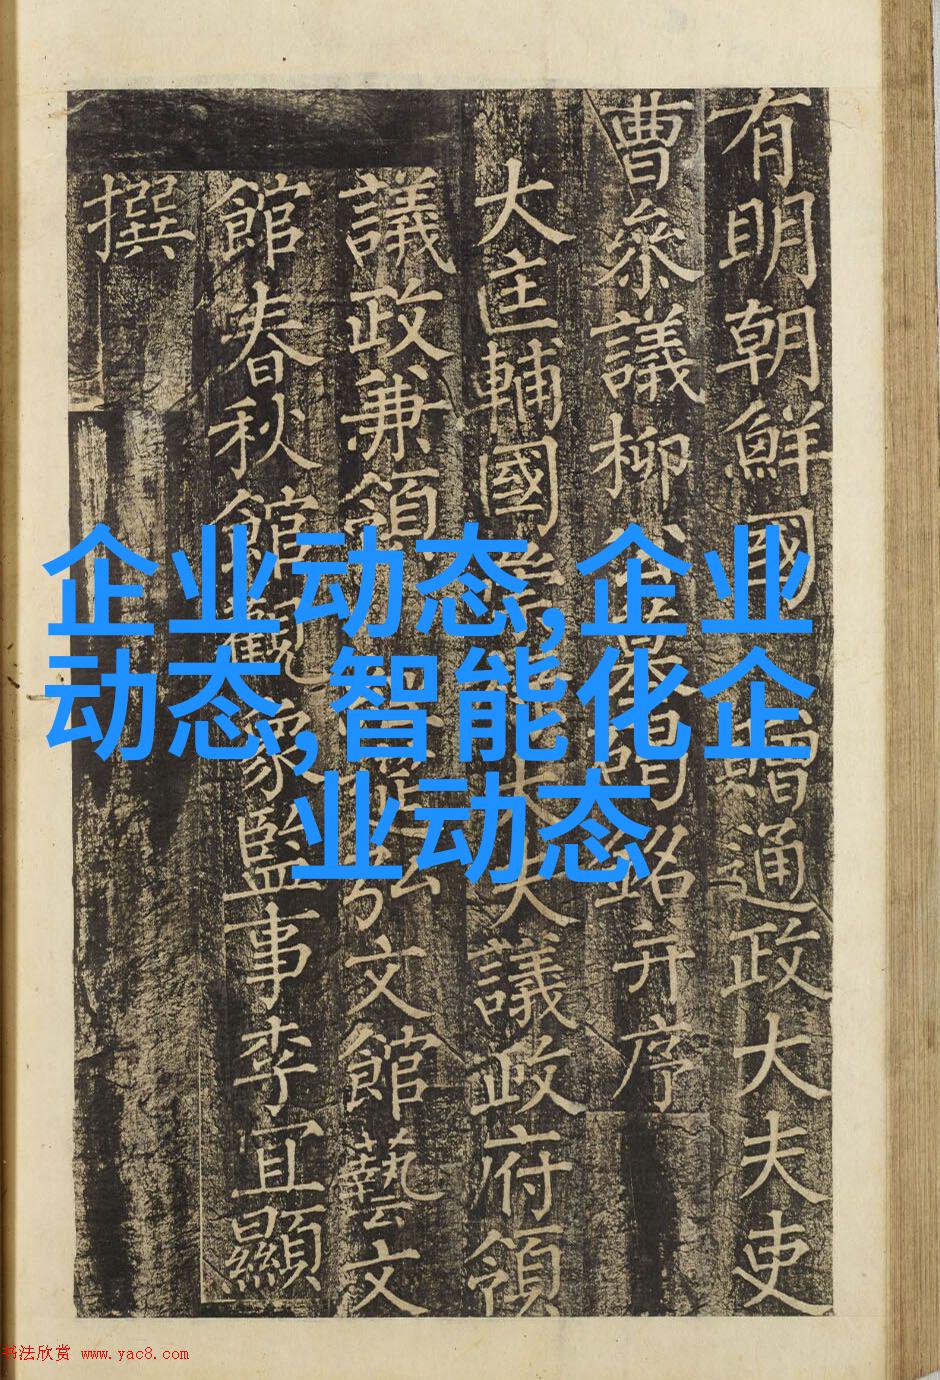 有明朝鮮國贈通政大夫吏
曹叅議柳公墓碣銘并序
大匡輔國崇大夫議政府領
議政兼領筵弘文館藝文
館春秋館觀象監事李宜顯
撰
企业动态,企业
动态,智能化企
业动态
书法欣赏 www.yac8.com